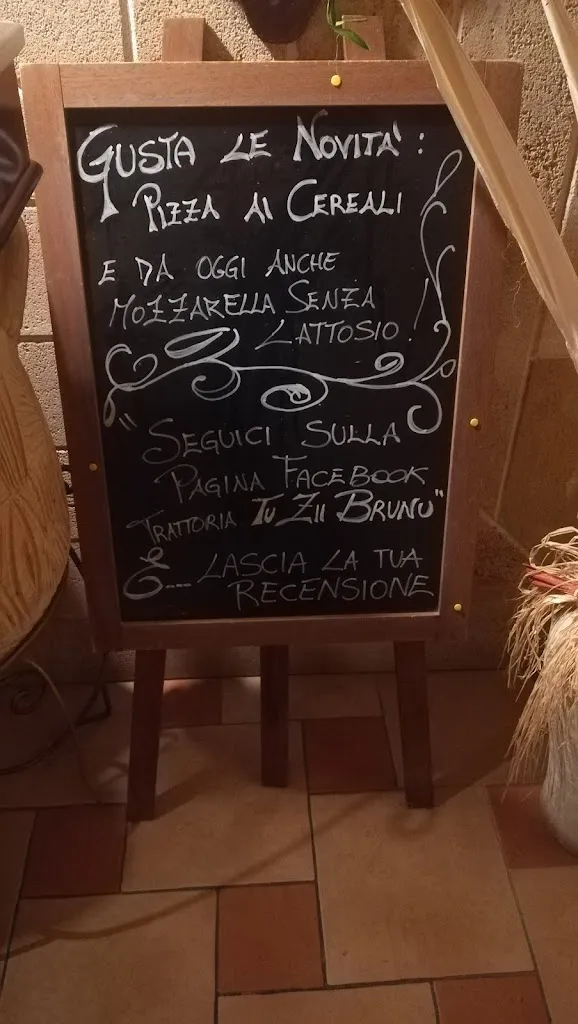 GUSTA LE NOVITA':
PIZZA AI CEREALI
E DA OGGI ANCHE
MOZZARELLA SENZA
LATTOSIO!
"SEGUICI SULLA
PAGINA FACEBOOK
TRATTORIA TU ZII BRUNU"
E... LASCIA LA TUA
RECENSIONE